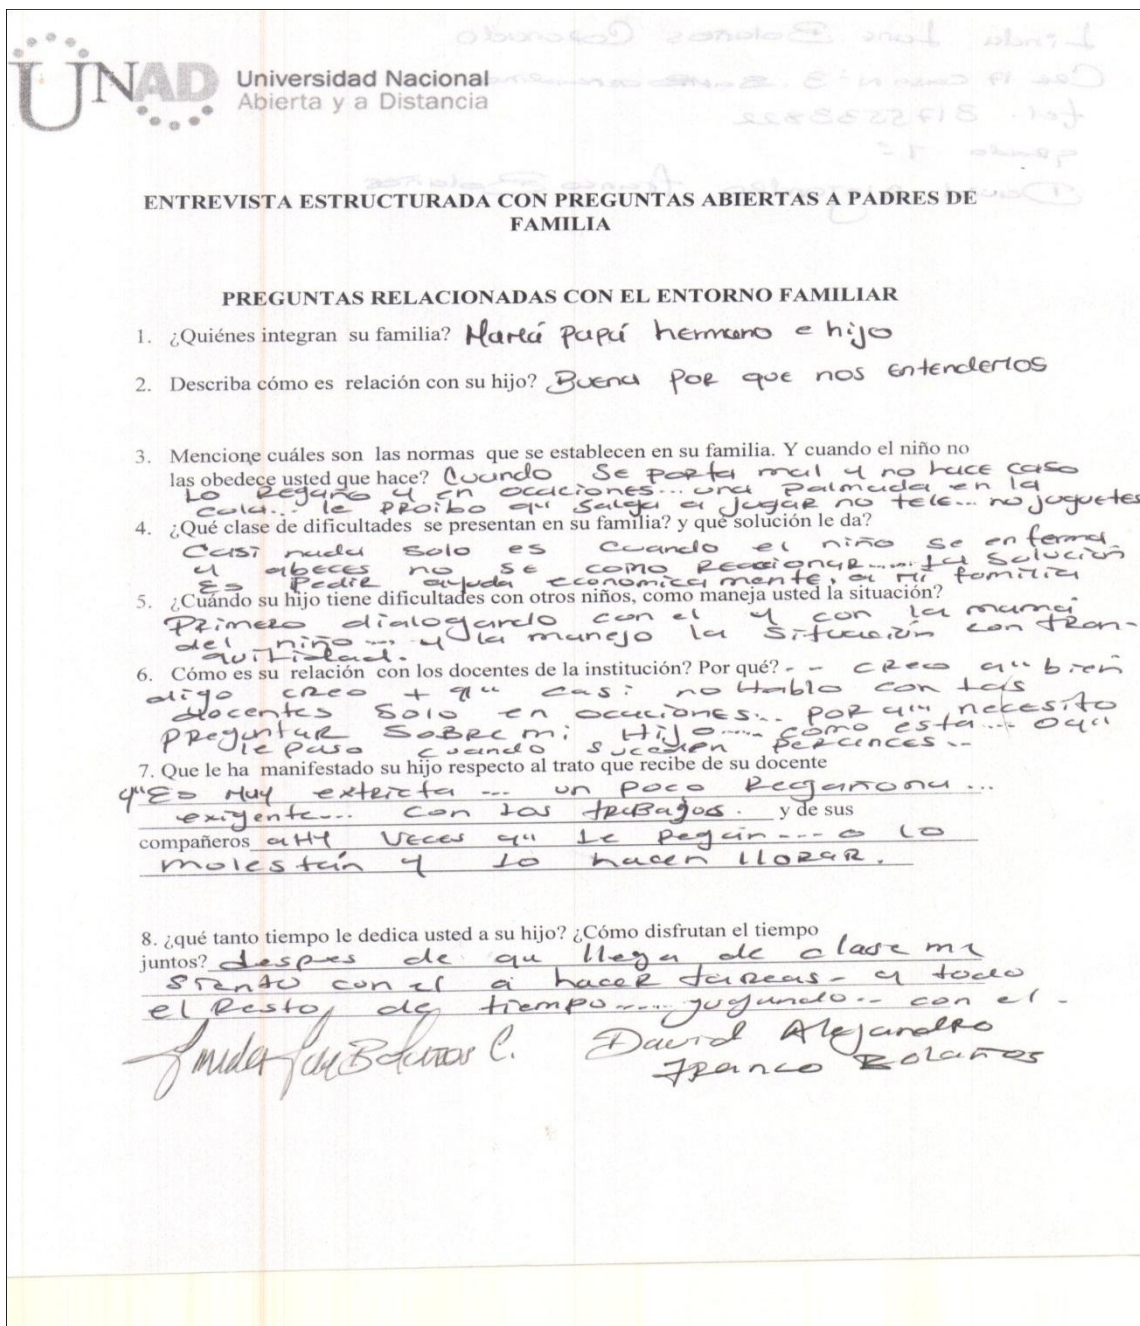 UNAD Universidad Nacional
Abierta y a Distancia
ENTREVISTA ESTRUCTURADA CON PREGUNTAS ABIERTAS A PADRES DE
FAMILIA
PREGUNTAS RELACIONADAS CON EL ENTORNO FAMILIAR
1. ¿Quiénes integran su familia? Mamá papá hermano e hijo
2. Describa cómo es relación con su hijo? Buena por que nos entendemos
3. Mencione cuáles son las normas que se establecen en su familia. Y cuando el niño no
las obedece usted que hace? Cuando se porta mal y no hace caso
Lo Regaño y en ocaciones... una palmada en la
cola... le proibo qu salga a jugar no tele... no juguetes
4. ¿Qué clase de dificultades se presentan en su familia? y qué solución le da?
Casi nada solo es cuando el niño se enferma
y abeces no se como Reaccionar..... La Solución
Es Pedir ayuda economicamente, a mi familia
5. ¿Cuándo su hijo tiene dificultades con otros niños, como maneja usted la situación?
Primero dialogando con el y con la mamá
del niño... y la manejo la situación con tran-
quilidad.
6. Cómo es su relación con los docentes de la institución? Por qué? - - creo qu bien
digo creo + qu casi no Hablo con los
docentes Solo en ocaciones... por qu necesito
preguntar Sobre mi Hijo..... como esta... o qu
le paso cuando suceden percances..
7. Que le ha manifestado su hijo respecto al trato que recibe de su docente
qu Es Muy extricta ... un poco Regañona ...
exigente... con los trabagos. y de sus
compañeros aHY Veces qu le pegan --- o lo
molestan y lo hacen lloRaR.
8. ¿qué tanto tiempo le dedica usted a su hijo? ¿Cómo disfrutan el tiempo
juntos? despues de qu llega de clase me
siento con el a hacer tareas - y todo
el Resto, de tiempo..... jugando.. con el -
Bolaños C. David Alejandro
Franco Bolaños